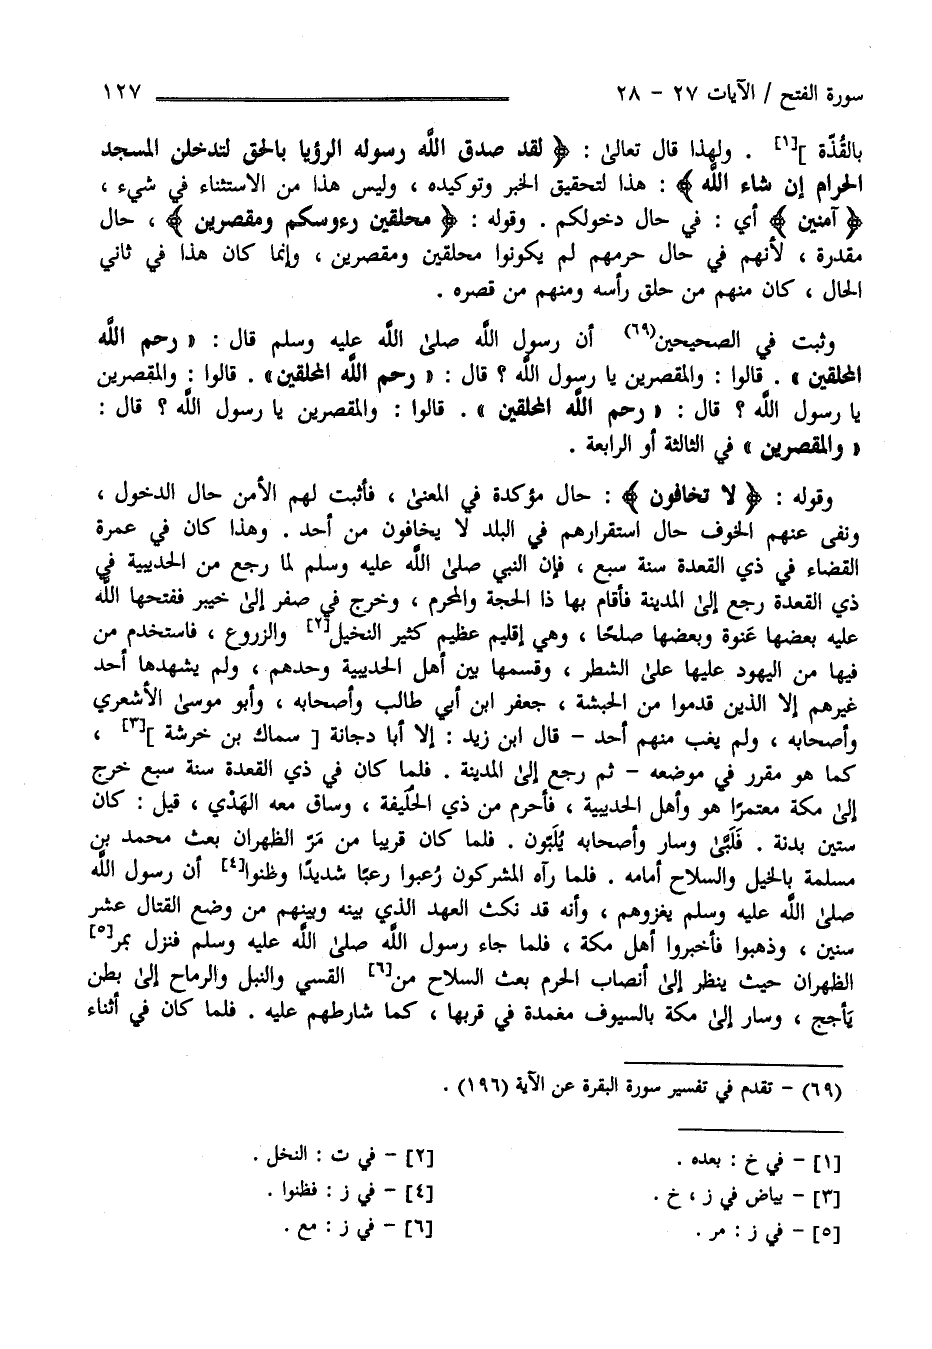 سورة الفتح / الآيات ٢٧ - ٢٨ ١٢٧
بالقُذّة ][١] . ولهذا قال تعالىٰ : ﴿ لقد صدق اللَّه رسوله الرؤيا بالحق لتدخلن المسجد
الحرام إن شاء اللَّه ﴾ : هذا لتحقيق الخبر وتوكيده ، وليس هذا من الاستثناء في شيء ،
﴿ آمنين ﴾ أي : في حال دخولكم . وقوله : ﴿ محلقين رءوسكم ومقصرين ﴾ ، حال
مقدرة ، لأنهم في حال حرمهم لم يكونوا محلقين ومقصرين ، وإنما كان هذا في ثاني
الحال ، كان منهم من حلق رأسه ومنهم من قصره .
وثبت في الصحيحين(٦٩) أن رسول اللَّه صلىٰ اللَّه عليه وسلم قال : « رحم اللَّه
المحلقين » . قالوا : والمقصرين يا رسول اللَّه ؟ قال : « رحم اللَّه المحلقين» . قالوا : والمقصرين
يا رسول اللَّه ؟ قال : « رحم اللَّه المحلقين » . قالوا : والمقصرين يا رسول اللَّه ؟ قال :
« والمقصرين » في الثالثة أو الرابعة .
وقوله : ﴿ لا تخافون ﴾ : حال مؤكدة في المعنىٰ ، فأثبت لهم الأمن حال الدخول ،
ونفى عنهم الخوف حال استقرارهم في البلد لا يخافون من أحد . وهذا كان في عمرة
القضاء في ذي القعدة سنة سبع ، فإن النبي صلىٰ اللَّه عليه وسلم لما رجع من الحديبية في
ذي القعدة رجع إلىٰ المدينة فأقام بها ذا الحجة والمحرم ، وخرج في صفر إلىٰ خيبر ففتحها اللَّه
عليه بعضها عَنوة وبعضها صلحًا ، وهي إقليم عظيم كثير النخيل[٢] والزروع ، فاستخدم من
فيها من اليهود عليها علىٰ الشطر ، وقسمها بين أهل الحديبية وحدهم ، ولم يشهدها أحد
غيرهم إلا الذين قدموا من الحبشة ، جعفر ابن أبي طالب وأصحابه ، وأبو موسىٰ الأشعري
وأصحابه ، ولم يغب منهم أحد - قال ابن زيد : إلا أبا دجانة [ سماك بن خرشة ][٣] ،
كما هو مقرر في موضعه - ثم رجع إلىٰ المدينة . فلما كان في ذي القعدة سنة سبع خرج
إلىٰ مكة معتمرًا هو وأهل الحديبية ، فأحرم من ذي الحُلَيفة ، وساق معه الهَدْي ، قيل : كان
ستين بدنة . فَلَبَّىٰ وسار وأصحابه يُلَبّون . فلما كان قريبا من مَرّ الظهران بعث محمد بن
مسلمة بالخيل والسلاح أمامه . فلما رآه المشركون رُعبوا رعبًا شديدًا وظنوا[٤] أن رسول اللَّه
صلىٰ اللَّه عليه وسلم يغزوهم ، وأنه قد نكث العهد الذي بينه وبينهم من وضع القتال عشر
سنين ، وذهبوا فأخبروا أهل مكة ، فلما جاء رسول اللَّه صلىٰ اللَّه عليه وسلم فنزل بمر[٥]
الظهران حيث ينظر إلىٰ أنصاب الحرم بعث السلاح من[٦] القسي والنبل والرماح إلىٰ بطن
يَأجج ، وسار إلىٰ مكة بالسيوف مغمدة في قربها ، كما شارطهم عليه . فلما كان في أثناء
(٦٩) - تقدم في تفسير سورة البقرة عن الآية (١٩٦) .
[١] - في خ : بعده . [٢] - في ت : النخل .
[٣] - بياض في ز ، خ . [٤] - في ز : فظنوا .
[٥] - في ز : مر . [٦] - في ز : مع .